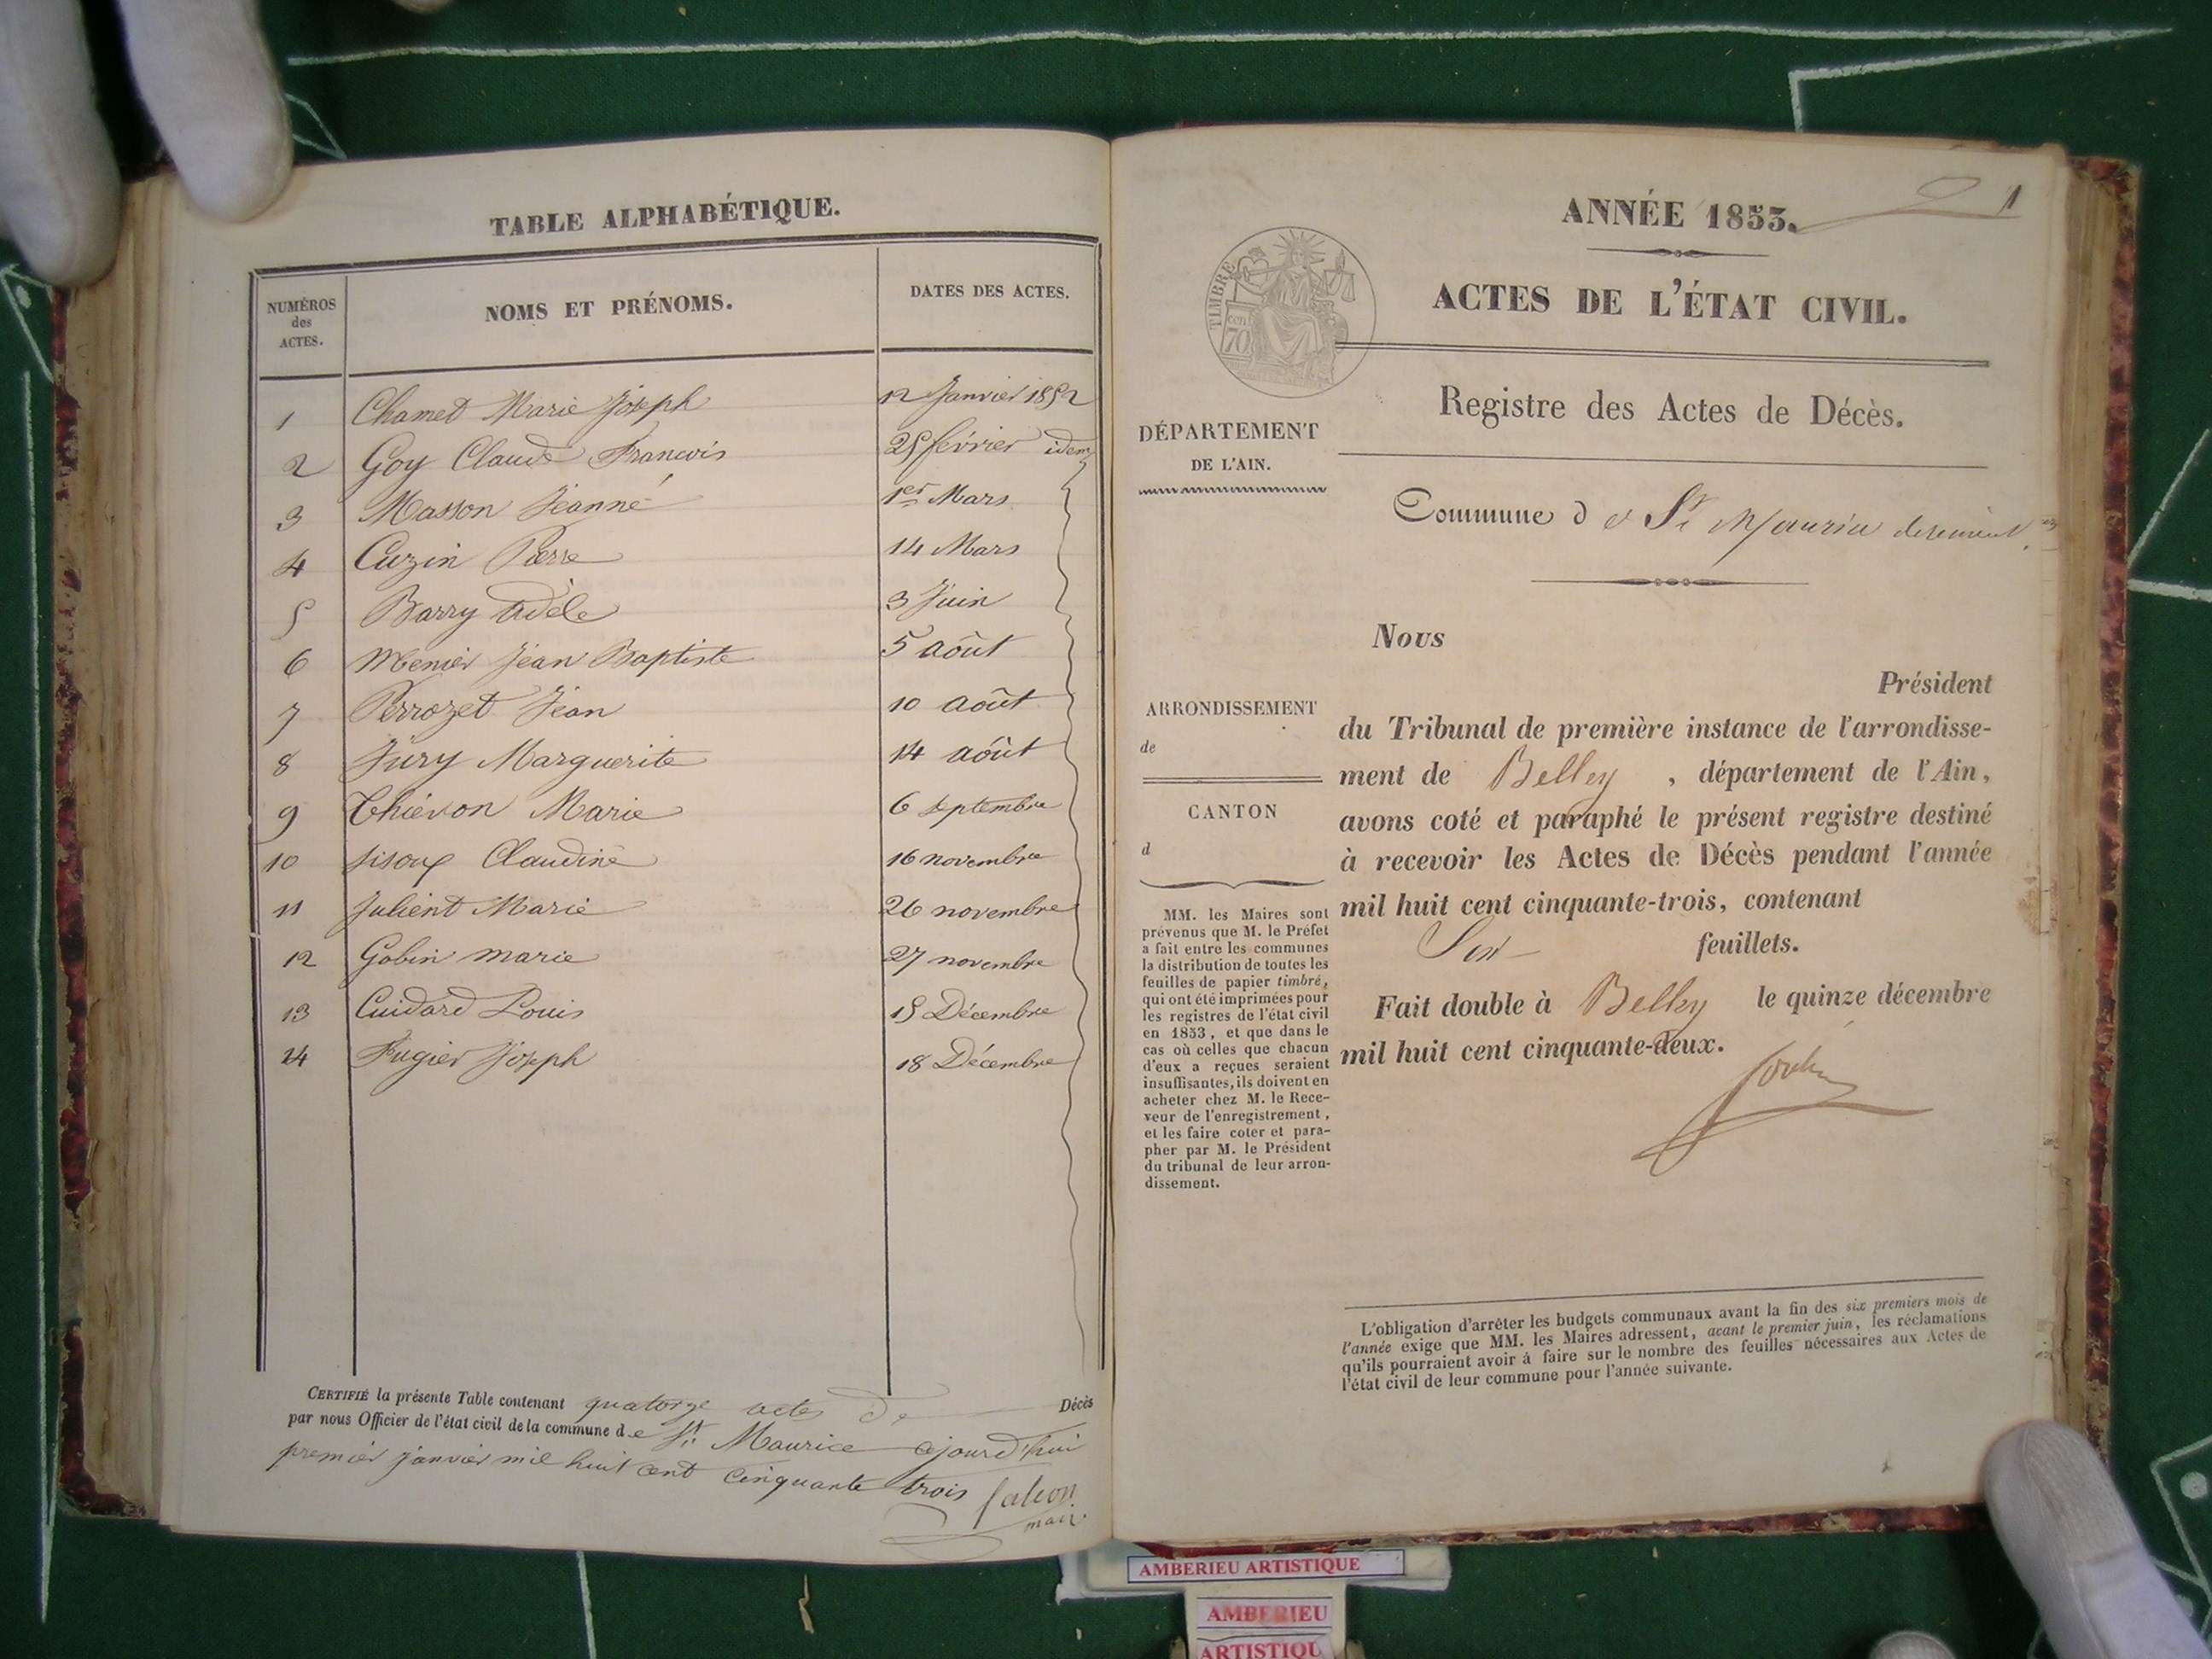 TABLE ALPHABÉTIQUE.
NUMÉROS
des
ACTES.
NOMS ET PRÉNOMS.
DATES DES ACTES.
1 Chamet Marie Joseph 12 Janvier 1852
2 Goy Claude Francois 25 février idem
3 Masson Jeanne 1er Mars
4 Cuzin Pierre 14 Mars
5 Barry Adèle 3 Juin
6 Menier Jean Baptiste 5 août
7 Perrozet Jean 10 août
8 Jury Marguerite 14 août
9 Thiévon Marie 6 septembre
10 Claudine 16 novembre
11 Julient Marie 26 novembre
12 Gobin marie 27 novembre
13 Cuidard Louis 15 Décembre
14 Fugier Joseph 18 Décembre
CERTIFIÉ la présente Table contenant quatorze actes De Décès
par nous Officier de l'état civil de la commune de St. Maurice ajourd'hui
premier janvier mil huit cent cinquante trois
maire
1
ANNÉE 1853.
ACTES DE L'ÉTAT CIVIL.
TIMBRE
cent
70
Registre des Actes de Décès.
DÉPARTEMENT
DE L'AIN.
Commune d e St Maurice
Nous
Président
du Tribunal de première instance de l'arrondisse-
ment de Belley , département de l'Ain,
avons coté et paraphé le présent registre destiné
à recevoir les Actes de Décès pendant l'année
mil huit cent cinquante-trois, contenant
Six feuillets.
Fait double à Belley le quinze décembre
mil huit cent cinquante-deux.
ARRONDISSEMENT
de
CANTON
d
MM. les Maires sont
prévenus que M. le Préfet
a fait entre les communes
la distribution de toutes les
feuilles de papier timbré,
qui ont été imprimées pour
les registres de l'état civil
en 1853, et que dans le
cas où celles que chacun
d'eux a reçues seraient
insuffisantes, ils doivent en
acheter chez M. le Rece-
veur de l'enregistrement,
et les faire coter et para-
pher par M. le Président
du tribunal de leur arron-
dissement.
L'obligation d'arrêter les budgets communaux avant la fin des six premiers mois de
l'année exige que MM. les Maires adressent, avant le premier juin, les réclamations
qu'ils pourraient avoir à faire sur le nombre des feuilles nécessaires aux Actes de
l'état civil de leur commune pour l'année suivante.
AMBERIEU ARTISTIQUE
AMBERIEU
ARTISTIQU